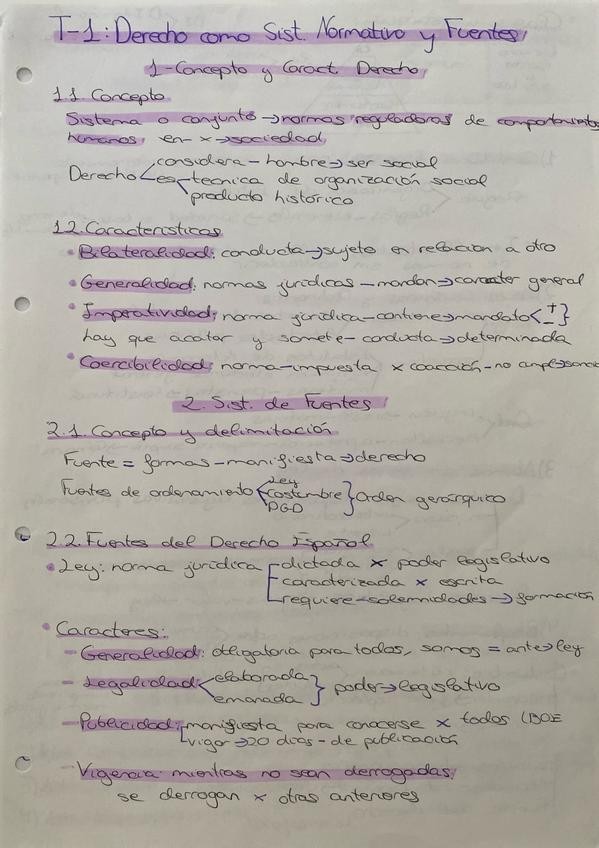 T-1: Derecho como Sist. Normativo y Fuentes
1-Concepto y Caract. Derecho
1.1 Concepto
Sistema o conjunto → normas reguladoras de comportamientos
humanos, en x → sociedad
considera - hombre → ser social
Derecho es - tecnica de organización social
producto histórico
1.2. Características
• Bilateralidad: conducta → sujeto en relacion a otro
• Generalidad: normas jurídicas - mandan → caracter general
• Imperatividad: norma jurídica - contiene → mandato < + - }
hay que acatar y somete - conducta → determinada
• Coercibilidad: norma - impuesta x coacción - no cumpl →
2. Sist. de Fuentes
2.1. Concepto y delimitación
Fuente = formas - manifiesta → derecho
Ley
Fuentes de ordenamiento < costumbre } Orden gerárquico
PGD
2.2. Fuentes del Derecho Español
• Ley: norma jurídica dictada x poder legislativo
caracterizada x escrita
requiere - solemnidades → formación
• Caracteres:
- Generalidad: obligatoria para todos, somos = ante → ley
- Legalidad < elaborada
emanada } poder → legislativo
- Publicidad: manifiesta para conocerse x todos (BOE
vigor → 20 dias - de publicación
- Vigencia mientras no sean derrogadas:
se derrogan x otras anteriores